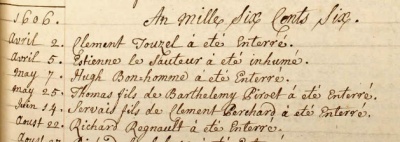 1606. An Mille Six Cents Six.
Avril 2. Clement Touzel a été Enterré.
Avril 5. Etienne le Sauteur a été inhumé.
May 7. Hugh Bonhomme a été Enterre.
May 25. Thomas fils de Barthelemy Piroet a été Enterré.
Juin 14. Servais fils de Clement Perchard a été Enterré.
Aoust 22. Richard Regnault a été Enterre.